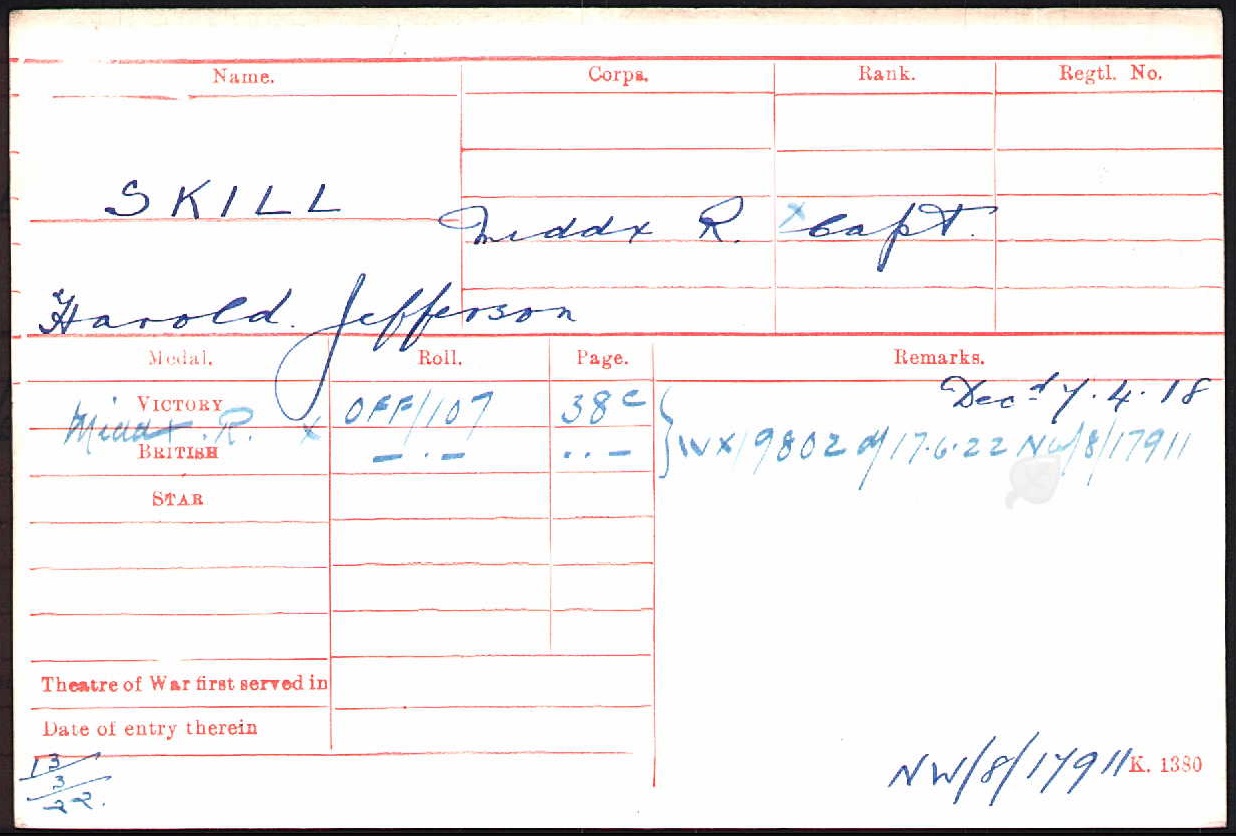 Name. Corps. Rank. Regtl. No.
SKILL
Middx R. x Capt.
Harold. Jefferson
Medal. Roll. Page. Remarks.
Decd 7.4.18
VICTORY OFF/107 38C
Middx. R. x
} WX/9802 d/17.6.22 NW/8/17911
BRITISH — . — . . —
STAR
Theatre of War first served in
Date of entry therein
13/3/22.
NW/8/17911 K. 1380